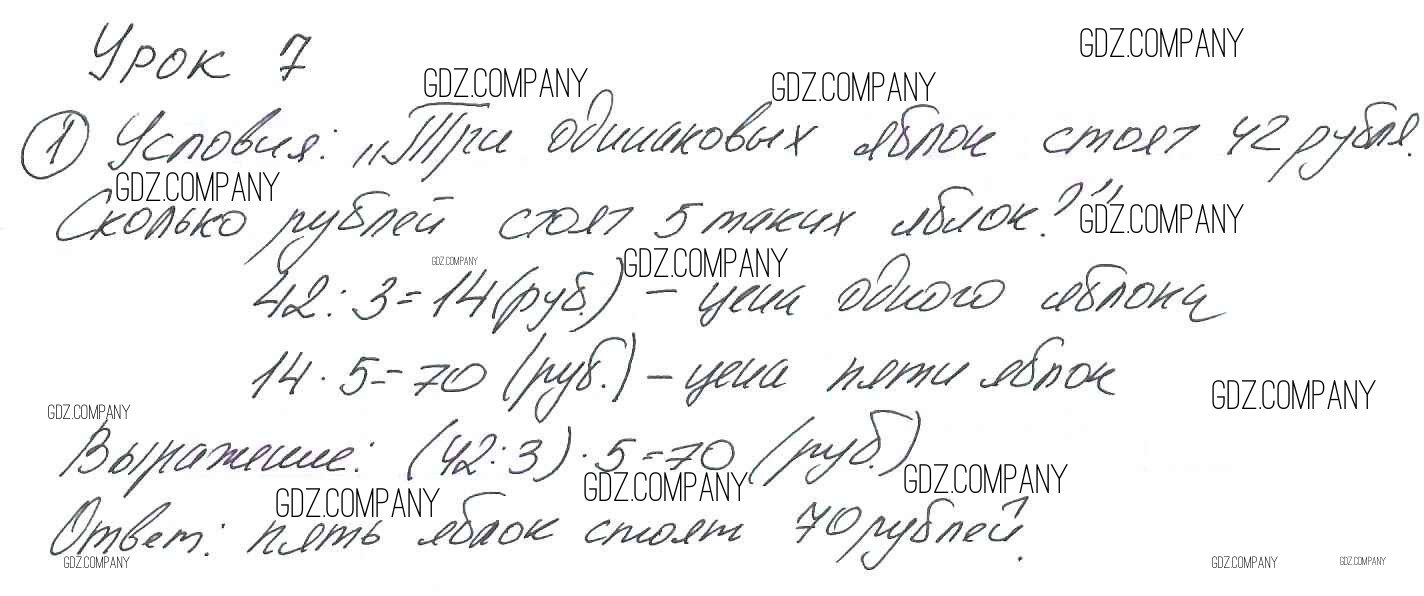 Урок 7
GDZ.COMPANY
GDZ.COMPANY GDZ.COMPANY
① Условия: „Три одинаковых яблок стоят 42 рубля.
GDZ.COMPANY
Сколько рублей стоят 5 таких яблок?"
GDZ.COMPANY
GDZ.COMPANY GDZ.COMPANY
42 : 3 = 14 (руб.) – цена одного яблока
14 · 5 = 70 (руб.) – цена пяти яблок
GDZ.COMPANY
GDZ.COMPANY
Выражение: (42 : 3) · 5 = 70 (руб.)
GDZ.COMPANY GDZ.COMPANY GDZ.COMPANY
Ответ: пять яблок стоят 70 рублей.
GDZ.COMPANY GDZ.COMPANY GDZ.COMPANY